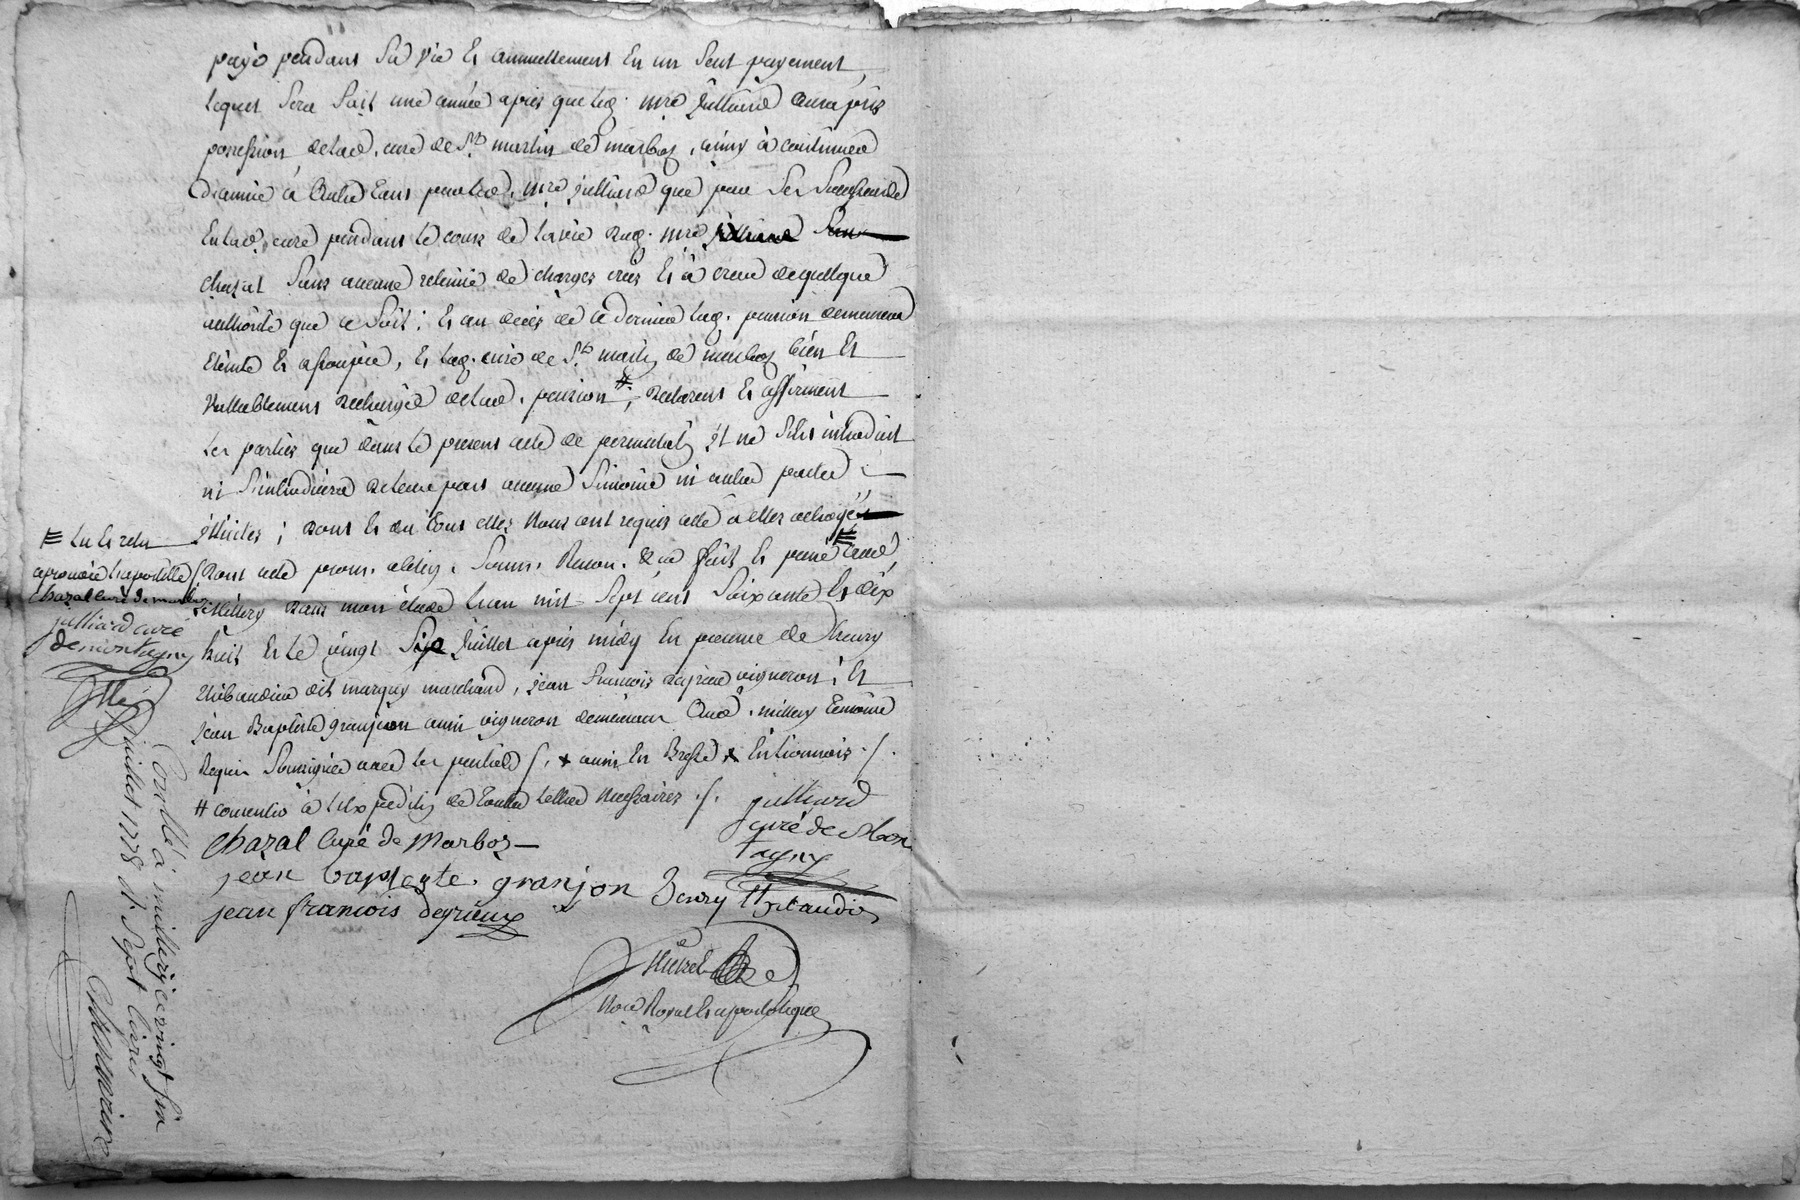 payé pendant sa vie et annuellement en un seul payement,
lequel sera fait une année après que led. mre julliard aura pris
possession de lad. cure de St. martin de marboz, ainsy à continuer
d'année à autre tant pour led. mre julliard que pour ses successeurs
en lad. cure pendant le cours de la vie dud. mre
chazal sans aucune retenue de charges crées et à creer de quelque
authorité que ce soit; et au decès de ce dernier lad. pension demeurera
éteinte et assoupie, et lad. cure de St. martin de marboz bien et
vallablement dechargée de lad. pension #, declarent et affirment
les parties que dans le present acte de permutaōn il ne s'est introduit
ni s'introduira de leur part aucune simonie ni autre pacte
illicites; dont et du tout elles nous ont requis acte à elles octroyé
Dont acte prom. oblig. soum. Renon. & ca fait et passé aud.
Millery dans mon étude l'an mil sept cent soixante et dix
huit et le vingt six juillet après midy en presence de henry
thibaudier dit marquy marchand, jean francois deyrieux vigneron, et
jean Baptiste granjeon aussi vigneron demeurant aud. millery témoins
Requis soussignés avec les parties /. x ainsi en Bresse x en lionnois ./.
# consentir à l'expeditiōn de toutes lettres necessaires ./.
≢ lu et relu
aprouvée l'apostille /.
Chazal curé de marboz
julliard curé
de montagny
julliard
curé de Mon
tagny
chazal curé de Marboz
jean baptexte. granjon
henry Thibaudier
jean francois deyrieux
Nore Royal et apostolique
Controllé à millery ce vingt six
juillet 1778 R. sept livres